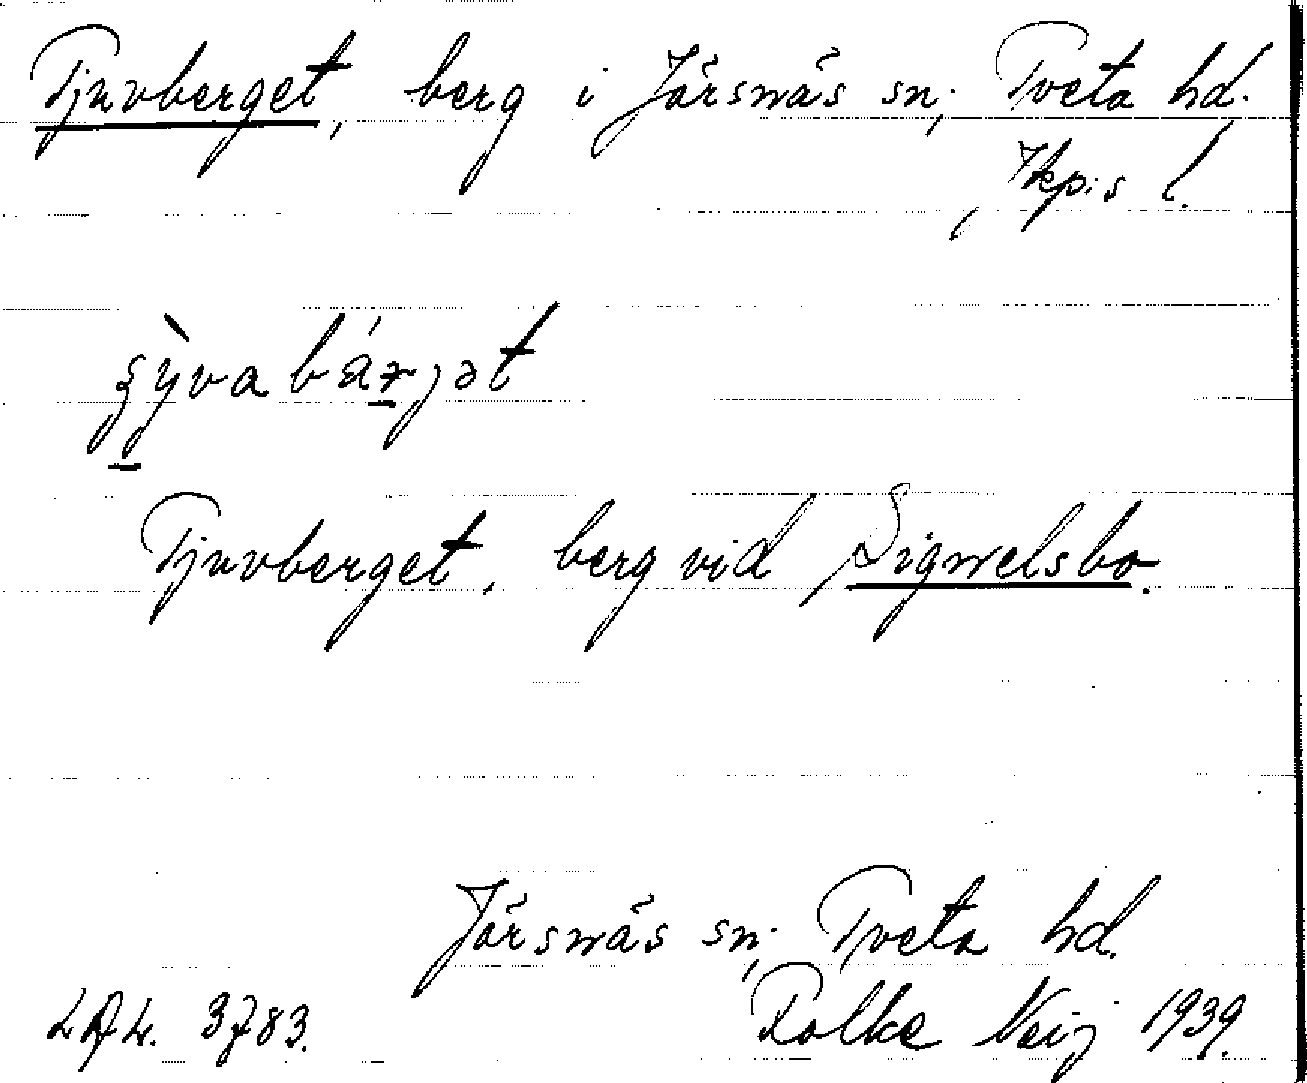 Tjuvberget, berg i Järsnäs sn; Tveta hd.
Jkp:s l.
Tjuvberget, berg vid Sigwelsbo.
Järsnäs sn; Tveta hd.
LAL. 3783. Rolke Neij 1939.